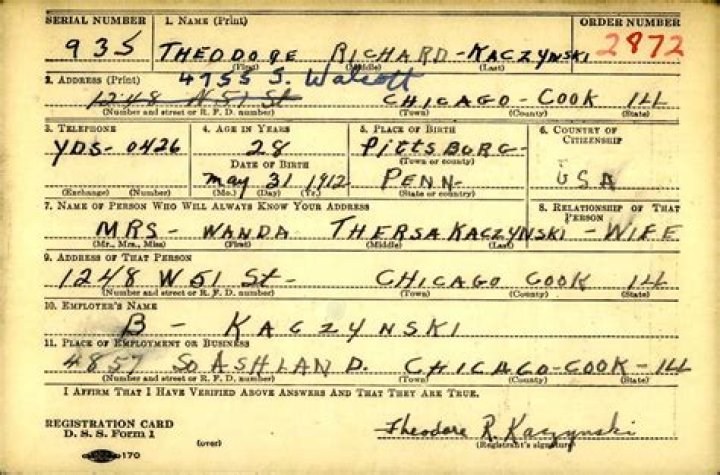 SERIAL NUMBER 1. NAME (Print) ORDER NUMBER
935 THEDDOGE RICHARD-KACZYNSKI 2872
(First) (Middle) (Last)
2. ADDRESS (Print) 4955 S. Walcott
1248 W 51 St CHICAGO-COOK ILL
(Number and street or R. F. D. number) (Town) (County) (State)
3. TELEPHONE 4. AGE IN YEARS 5. PLACE OF BIRTH 6. COUNTRY OF CITIZENSHIP
YDS-0426 28 PITTSBURG-
DATE OF BIRTH (Town or county)
May 31 1912 PENN- USA
(Exchange) (Number) (Mo.) (Day) (Yr.) (State or country)
7. NAME OF PERSON WHO WILL ALWAYS KNOW YOUR ADDRESS 8. RELATIONSHIP OF THAT PERSON
MRS-WANDA THERSA KACZYNSKI-WIFE
(Mr., Mrs., Miss) (First) (Middle) (Last)
9. ADDRESS OF THAT PERSON
1248 W 51 St- CHICAGO COOK ILL
(Number and street or R. F. D. number) (Town) (County) (State)
10. EMPLOYER'S NAME
B-KACZYNSKI
11. PLACE OF EMPLOYMENT OR BUSINESS
4857 SO ASHLAND. CHICAGO-COOK-ILL
(Number and street or R. F. D. number) (Town) (County) (State)
I AFFIRM THAT I HAVE VERIFIED ABOVE ANSWERS AND THAT THEY ARE TRUE.
REGISTRATION CARD
D. S. S. Form 1 Theodore R. Kaczynski
(over) (Registrant's signature)
170